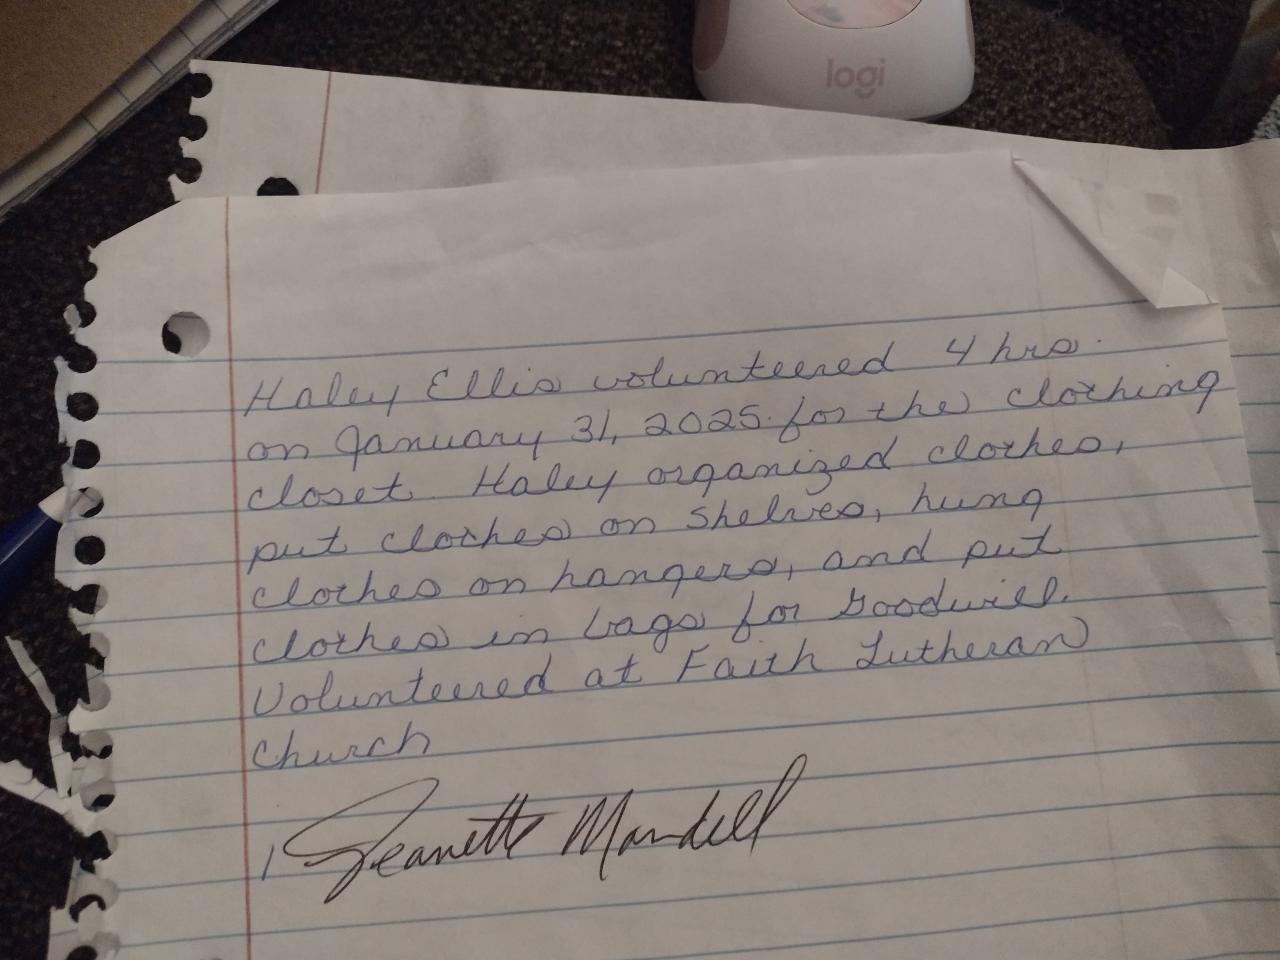 logi
Haley Ellis volunteered 4 hrs.
on January 31, 2025. for the clothing
closet. Haley organized clothes,
put clothes on shelves, hung
clothes on hangers, and put
clothes in bags for Goodwill.
Volunteered at Faith Lutheran
Church
Jeanette Mandell